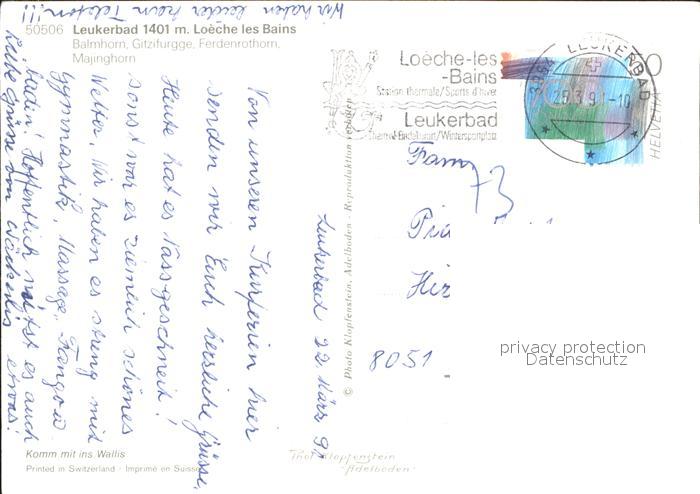 Wir haben leider kein Telefon!!!
50506 Leukerbad 1401 m. Loèche les Bains
Balmhorn, Gitzifurgge, Ferdenrothorn,
Majinghorn
Leukerbad 22. März 91
Von unseren Kurferien hier
senden wir Euch herzliche Grüsse.
Heute hat es Nassgeschneit!
sonst war es ziemlich schönes
Wetter. Wir haben es streng mit
Gymnastik, Massage, Fango u.
baden! Hoffentlich nützt es auch
etwas!
Liebe Grüsse von
Komm mit ins Wallis
Printed in Switzerland - Imprimé en Suisse
© Photo Klopfenstein, Adelboden - Reproduktion verboten
Photo Klopfenstein
Adelboden
Loèche-les
-Bains
Station thermale/Sports d'hiver
Leukerbad
Thermal-Badekurort/Wintersportplatz
3954 LEUKERBAD
25.3.91-10
HELVETIA
Fam
73
8051
privacy protection
Datenschutz